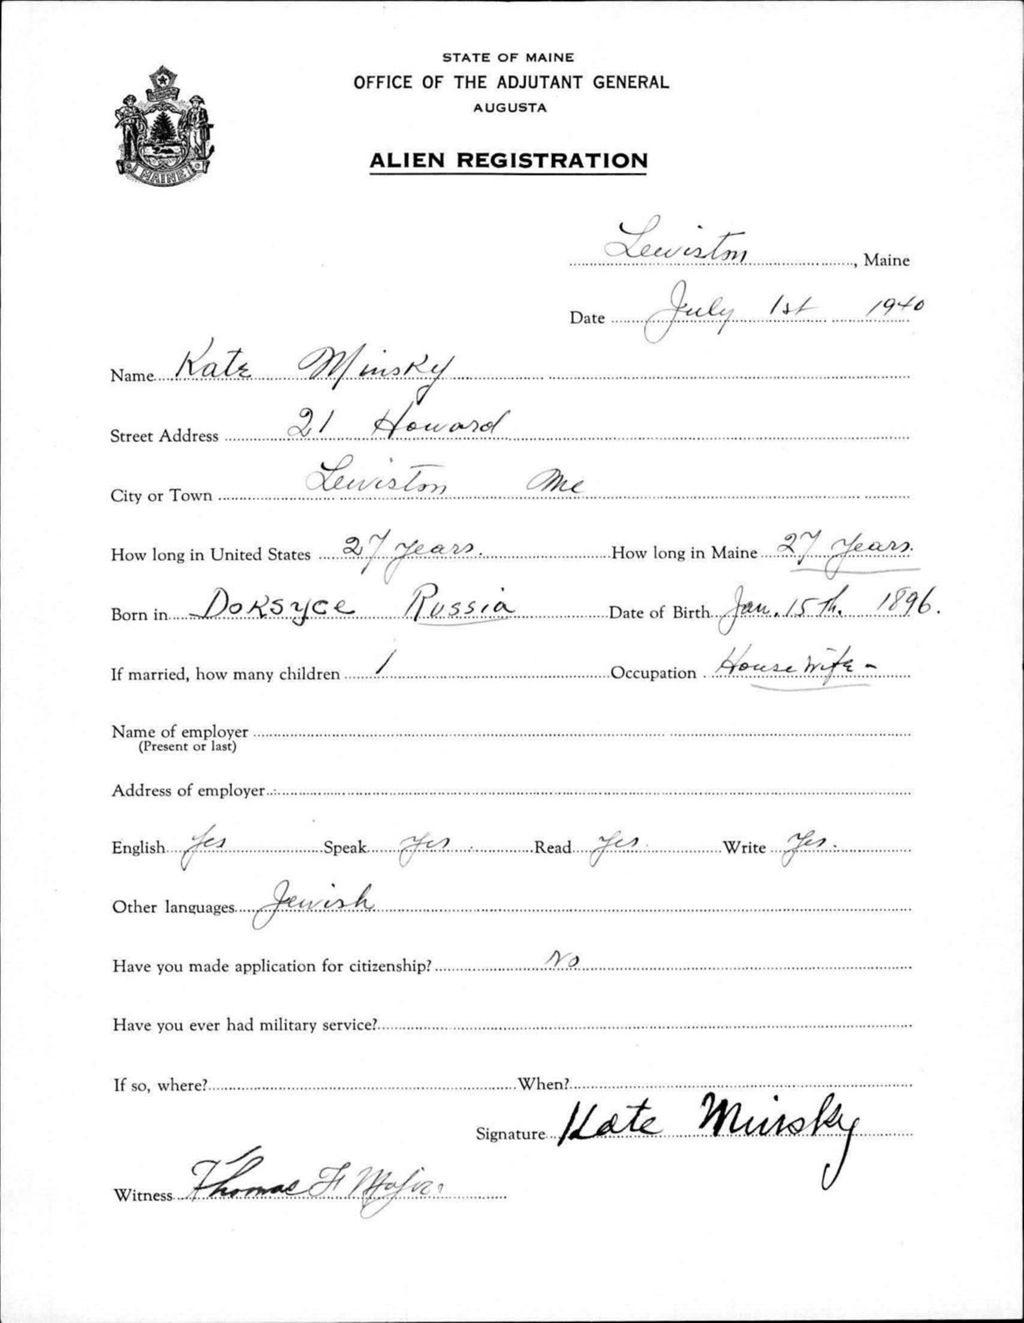 STATE OF MAINE
OFFICE OF THE ADJUTANT GENERAL
AUGUSTA
MAINE
ALIEN REGISTRATION
Lewiston, Maine
Date July 1st 1940
Name Kate Minsky
Street Address 21 Howard
City or Town Lewiston Me
How long in United States 27 years. How long in Maine 27 years.
Born in Doksyce Russia Date of Birth Jan. 15th. 1896.
If married, how many children 1 Occupation House Wife -
Name of employer
(Present or last)
Address of employer
English Yes Speak Yes Read Yes Write Yes.
Other languages Jewish
Have you made application for citizenship? No
Have you ever had military service?
If so, where? When?
Signature Kate Minsky
Witness Thomas F